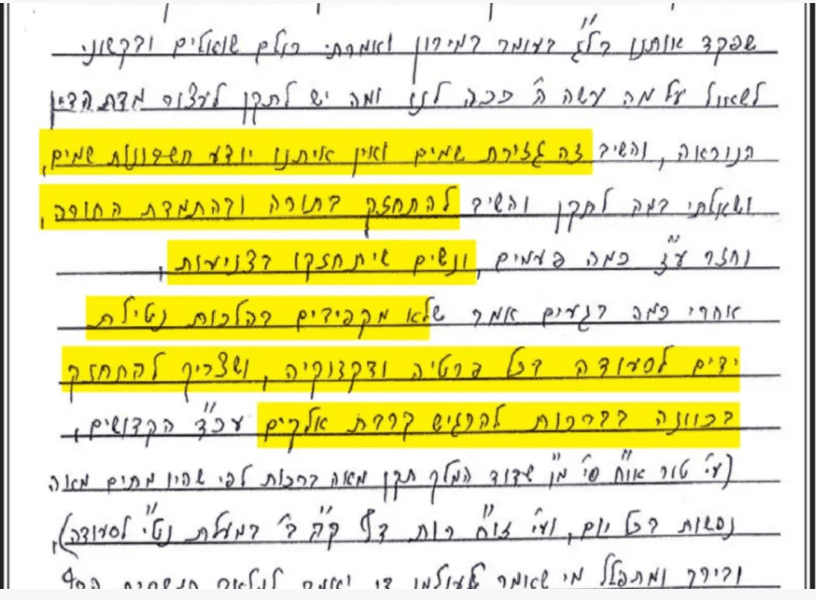 שפקד אותנו בל"ג בעומר במירון ואמרתי כולם שואלים ובקשוני
לשאול על מה עשה ה' ככה לנו ומה יש לתקן לעצור מדת הדין
הנוראה, והשיב זה גזירת שמים ואין איתנו יודע חשבונות שמים,
ושאלתי במה לתקן והשיב להתחזק בתורה ובהתמדת התורה,
וחזר ע"ז כמה פעמים, ונשים שיתחזקו בצניעות,
אחרי כמה רגעים אמר שלא מקפידים בהלכות נטילת
ידים לסעודה בכל פרטיה ודקדוקיה, ושצריך להתחזק
בכוונה בברכות להרגיש קרבת אלקים עכ"ד הקדושים,
(עי' טור או"ח סי' מ"ו שדוד המלך תקן מאה ברכות לפי שהיו מתים מאה
נפשות בכל יום, ועי' זוה"ח רות דף ק"ה ב' במעלת נט"י לסעודה),
ובירך ומתפלל מי שאמר לעולמו די יאמר